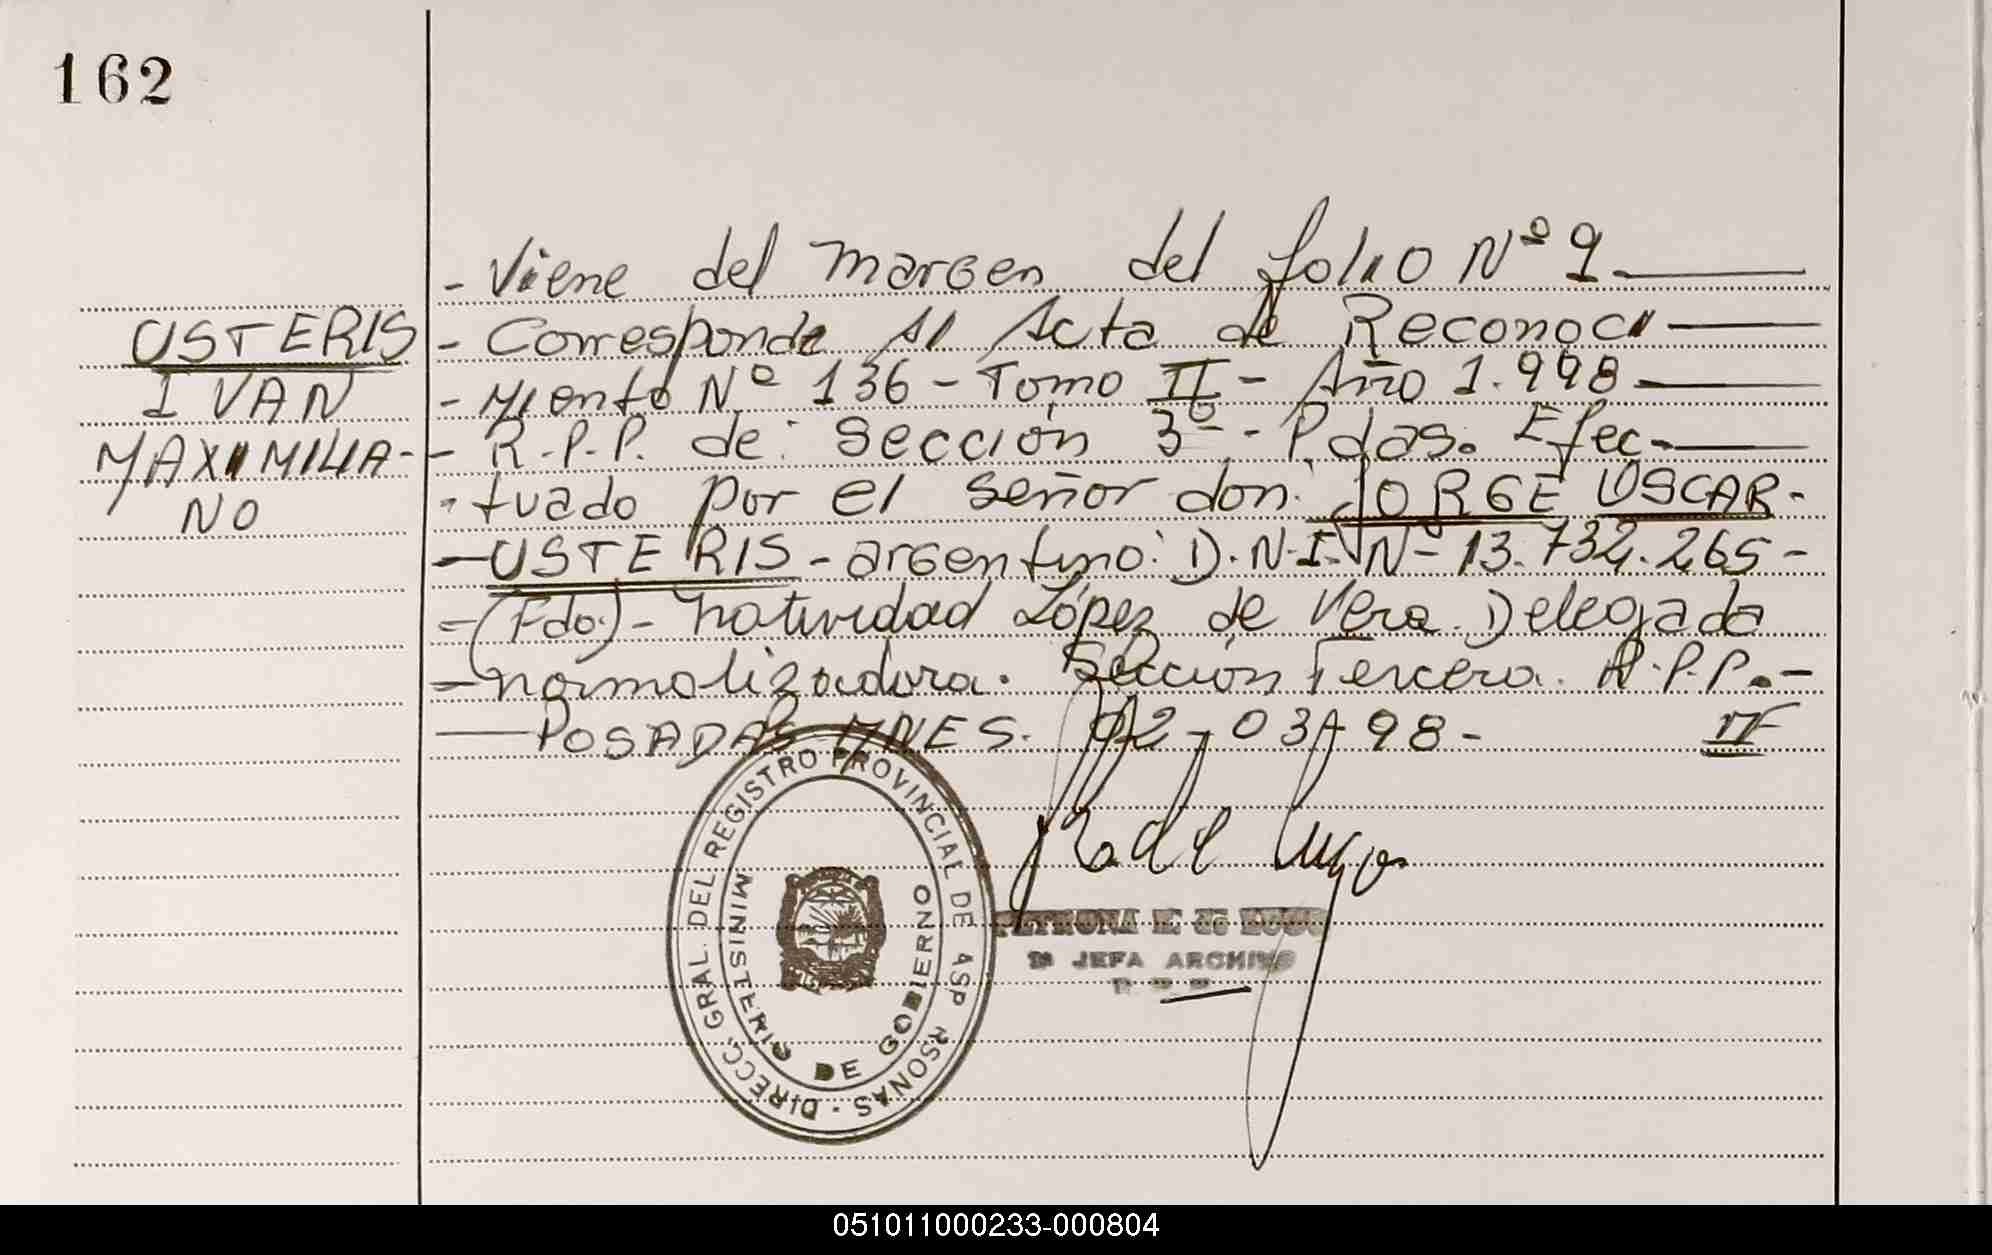 162
- Viene del margen del folio Nº 9
USTERIS
- Corresponde Al Acta de Reconoci
IVAN
- miento Nº 136 - Tomo II - Año 1.998
MAXIMILIA-
- R.P.P. de: Sección 3º - Pdas. Efec-
NO
- tuado por el señor don: JORGE OSCAR -
- USTERIS - argentino: D.N.I. Nº 13.732.265 -
- (Fdo.) - Natividad López de Vera. Delegada
- normalizadora. Sección Tercera. R.P.P. -
POSADAS MNES. 02-03-98 -
DIRECC. GRAL. DEL REGISTRO PROVINCIAL DE
MINISTERIO DE GOBIERNO
PETRONA
JEFA ARCHIVO
051011000233-000804